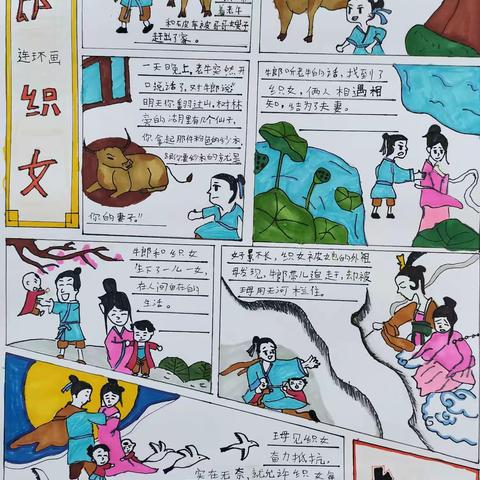 郎
织
女
连环画
着老牛
和破车被哥哥嫂子
赶出了家。
一天晚上,老牛突然开
口说话了,对牛郎说:
明天你翻过山,树林
旁的湖里有几个仙子,
你拿起那件粉色的纱衣,
你的妻子。"
牛郎听老牛的话,找到了
织女,俩人相遇相
知,结为了夫妻。
牛郎和织女
生下了一儿一女,
在人间自在的
生活。
好景不长,织女被她的外祖
母发现,牛郎带儿追赶,却被
王母用天河拦住。
王母见织女
奋力抵抗,
实在无奈,就允许织女每